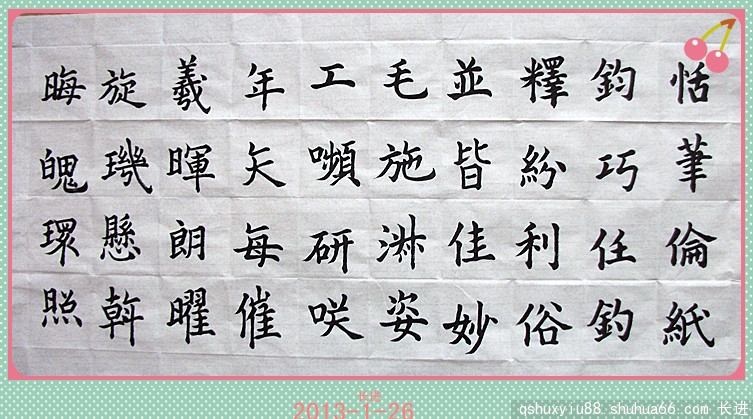 恬筆倫紙
鈞巧任釣
釋紛利俗
並皆佳妙
毛施淑姿
工嚬研咲
年矢每催
羲暉朗曜
旋璣懸斡
晦魄環照
长进
2013-1-26
qshuxyiu88.shuhua66.com 长进